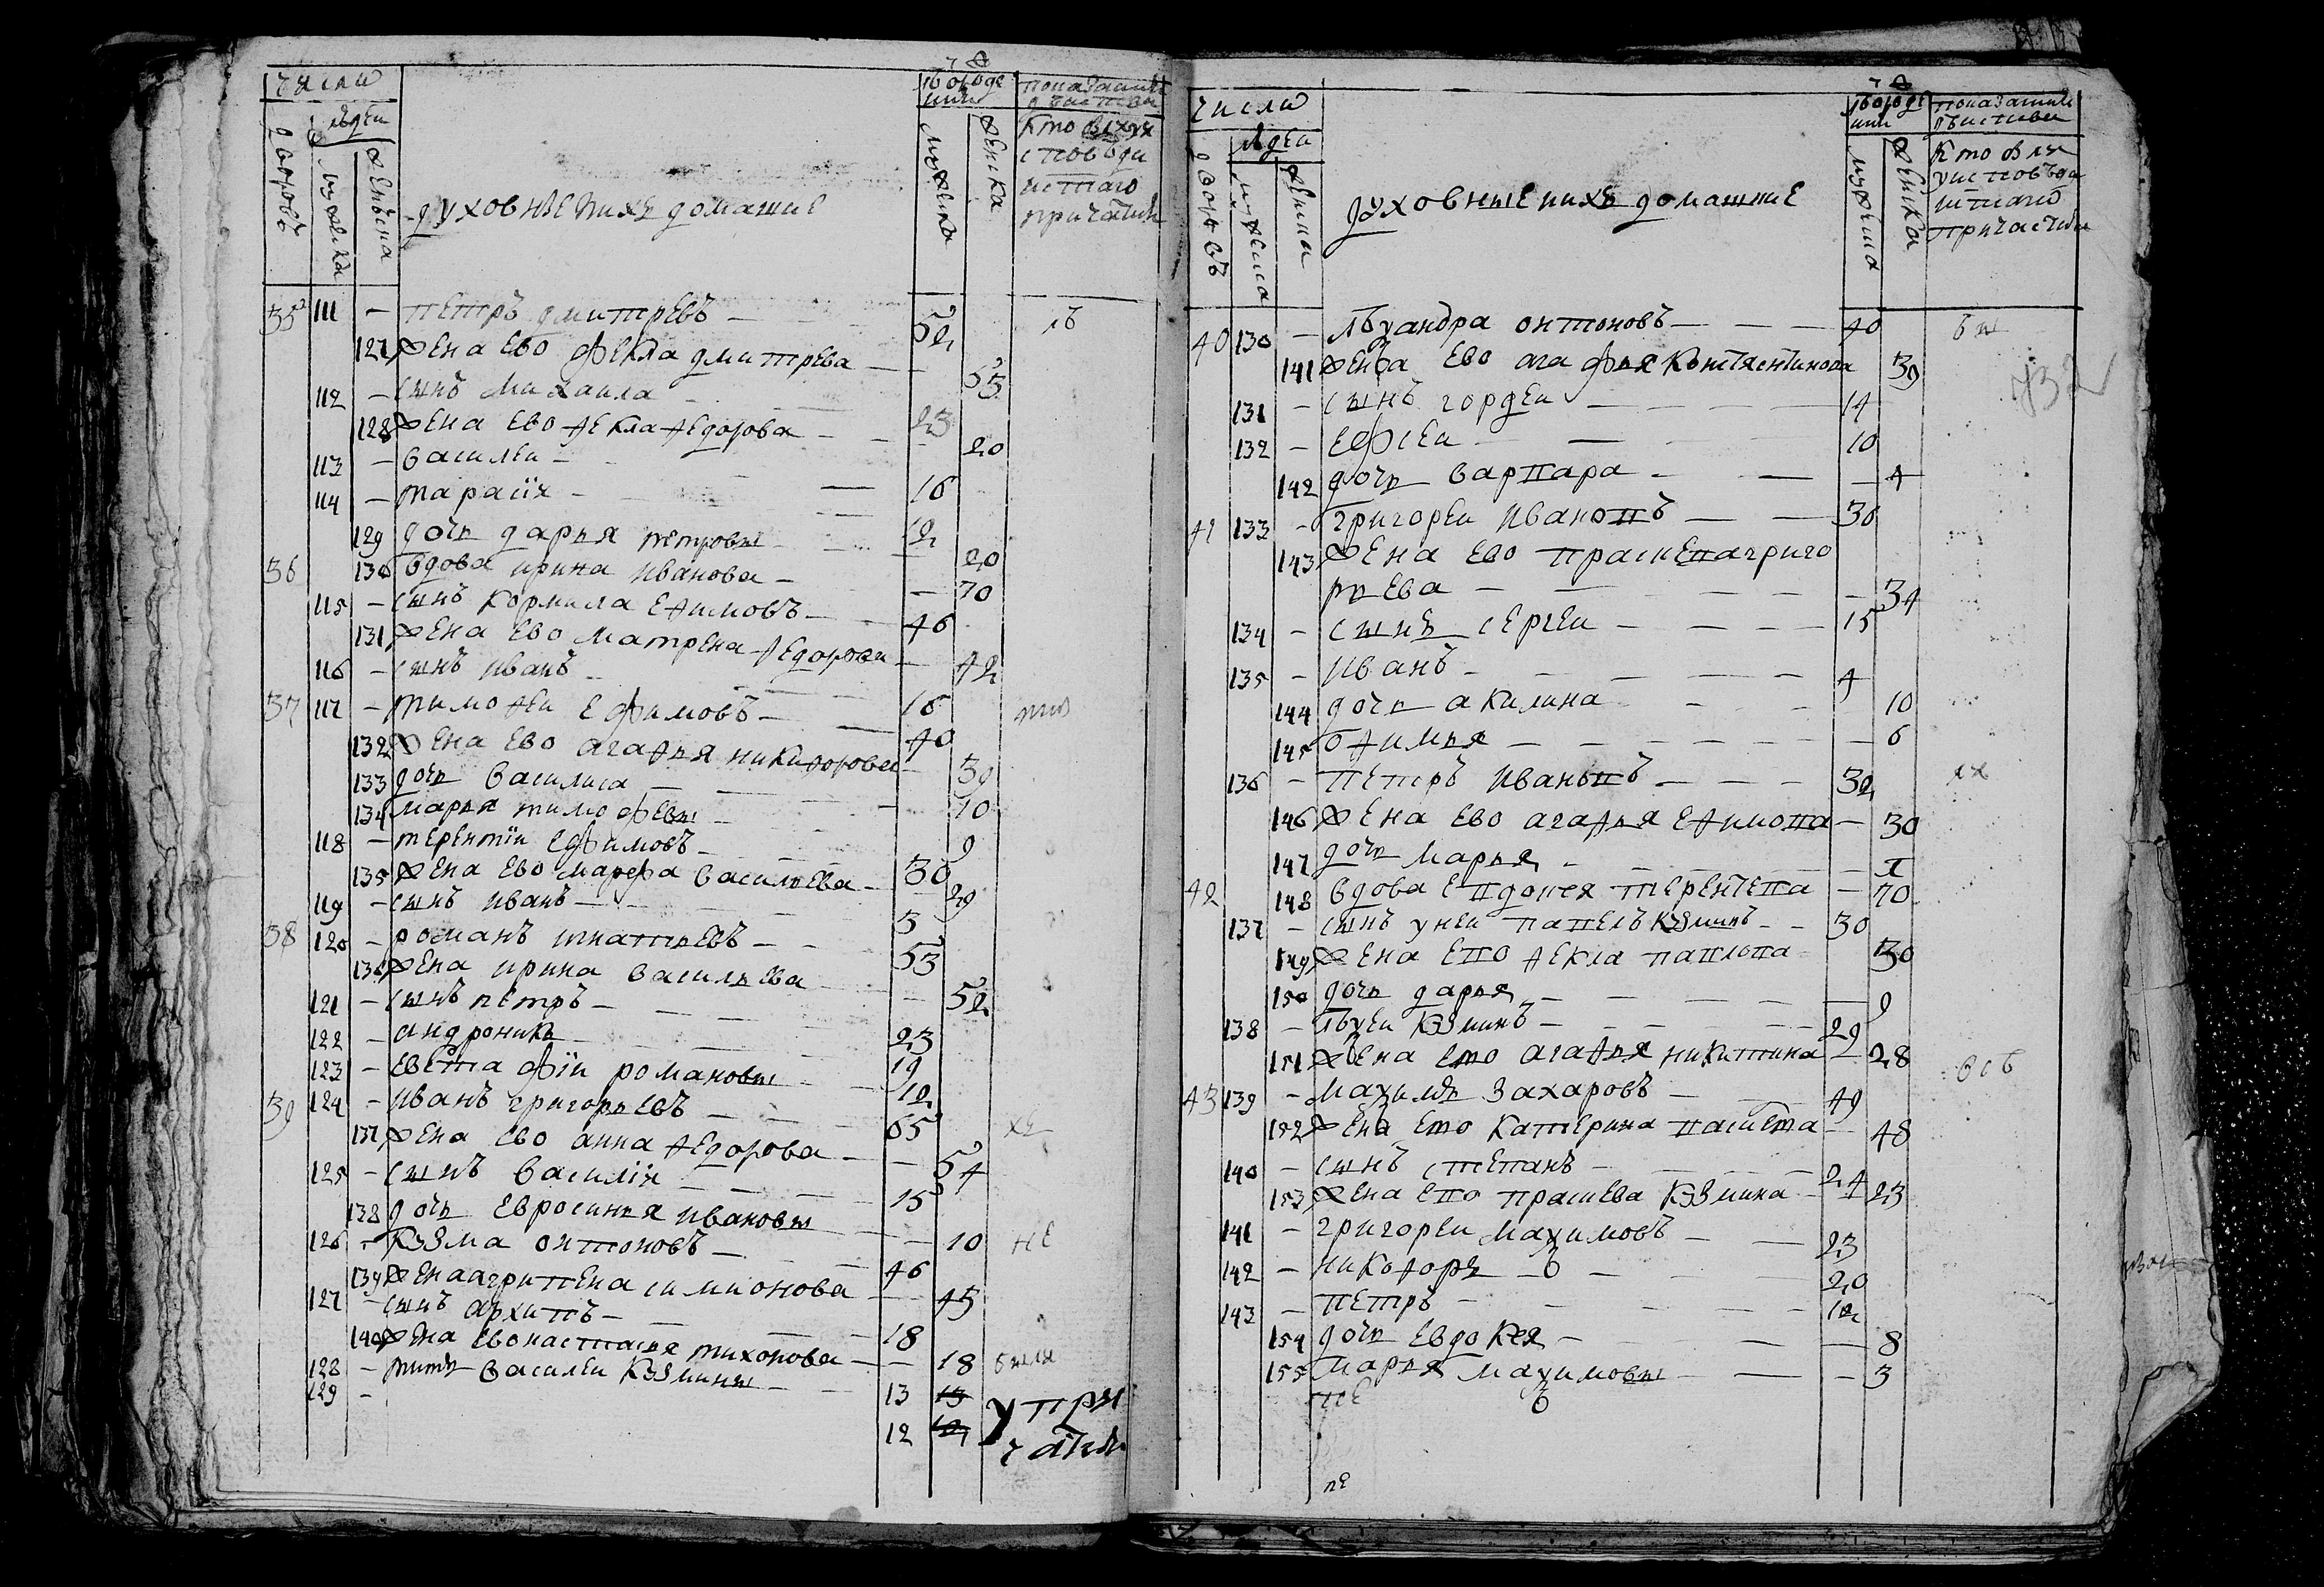 числω
людеи
дворовъ
мужеска
женска
духовные и ихъ домашние
ѿ рожде
ния
мужеска
женска
показание
действа
кто былъ
у исповеди
и с таго
причастия
35 111 — петръ дмитревъ — 52
127 жена ево фекла дмитрева — 53
112 — сынъ михаила — 23
128 жена ево фекла федорова — 20
113 — василеи — 16
114 — тарасiи — 12
129 дочь дарья петровы — 20
36 130 вдова ирина иванова — 70
115 — сынъ кормила ефимовъ — 46
131 жена ево матрена федорова — 42
116 — сынъ иванъ — 16
37 117 — тимофеи ефимовъ — 40
132 жена ево агафья никифорова — 39
133 дочь василиса — 10
134 марья тимофеевы — 9
118 — терентiи ефимовъ — 30
135 жена ево марфа васильева — 29
119 — сынъ иванъ — 3
38 120 — романъ игнатьевъ — 53
136 жена ирина васильева — 52
121 — сынъ петръ — 23
122 — андроникъ — 19
123 — евстафiи романовы — 12
39 124 — иванъ григорьевъ — 65
137 жена ево анна федорова — 54
125 — сынъ василiи — 15
138 дочь евросинья ивановы — 10 не
126 — кузма онтоновъ — 46
139 жена агрипена симионова — 45
127 — сынъ архипъ — 18
140 жена ево настасья тихонова — 18 были
128 — титъ василеи кузмины — 13 13
129 — 12 12
у при
частия
числω
людеи
дворовъ
мужеска
женска
духовные и ихъ домашние
ѿ рожде
ния
мужеска
женска
показание
действа
кто былъ
у исповеди
и с таго
причастия
40 130 — онтоновъ — 40 бы
141 жена ево агафья костянтинова 39
131 — сынъ гордеи — 14
132 — ефсеи — 10
142 дочь варвара — 4
41 133 — григореи ивановъ — 36
143 жена ево прасковя григо
рьева — 34
134 — сынъ сергеи — 15
135 — иванъ — 4
144 дочь акилина — 10
145 офимья — 6
136 — петръ ивановъ — 32
146 жена ево агафья ефимова — 30
147 дочь марья —
42 148 вдова евдокея терентева — 70
137 — сынъ у неи павелъ кузминъ — 30
149 жена ево фекла павлова 30
150 дочь дарья — 9
138 — кузминъ — 29
151 жена ево агафья никитина — 28
43 139 — маѯимъ захаровъ — 49
152 жена ево катерина 48
140 — сынъ степанъ — 24
153 жена ево кузмина — 23
141 — григореи маѯимовъ — 23
142 — никофоръ — 20
143 — петръ — 12
154 дочь евдокея — 8
155 марья маѯимовы — 3
732
не